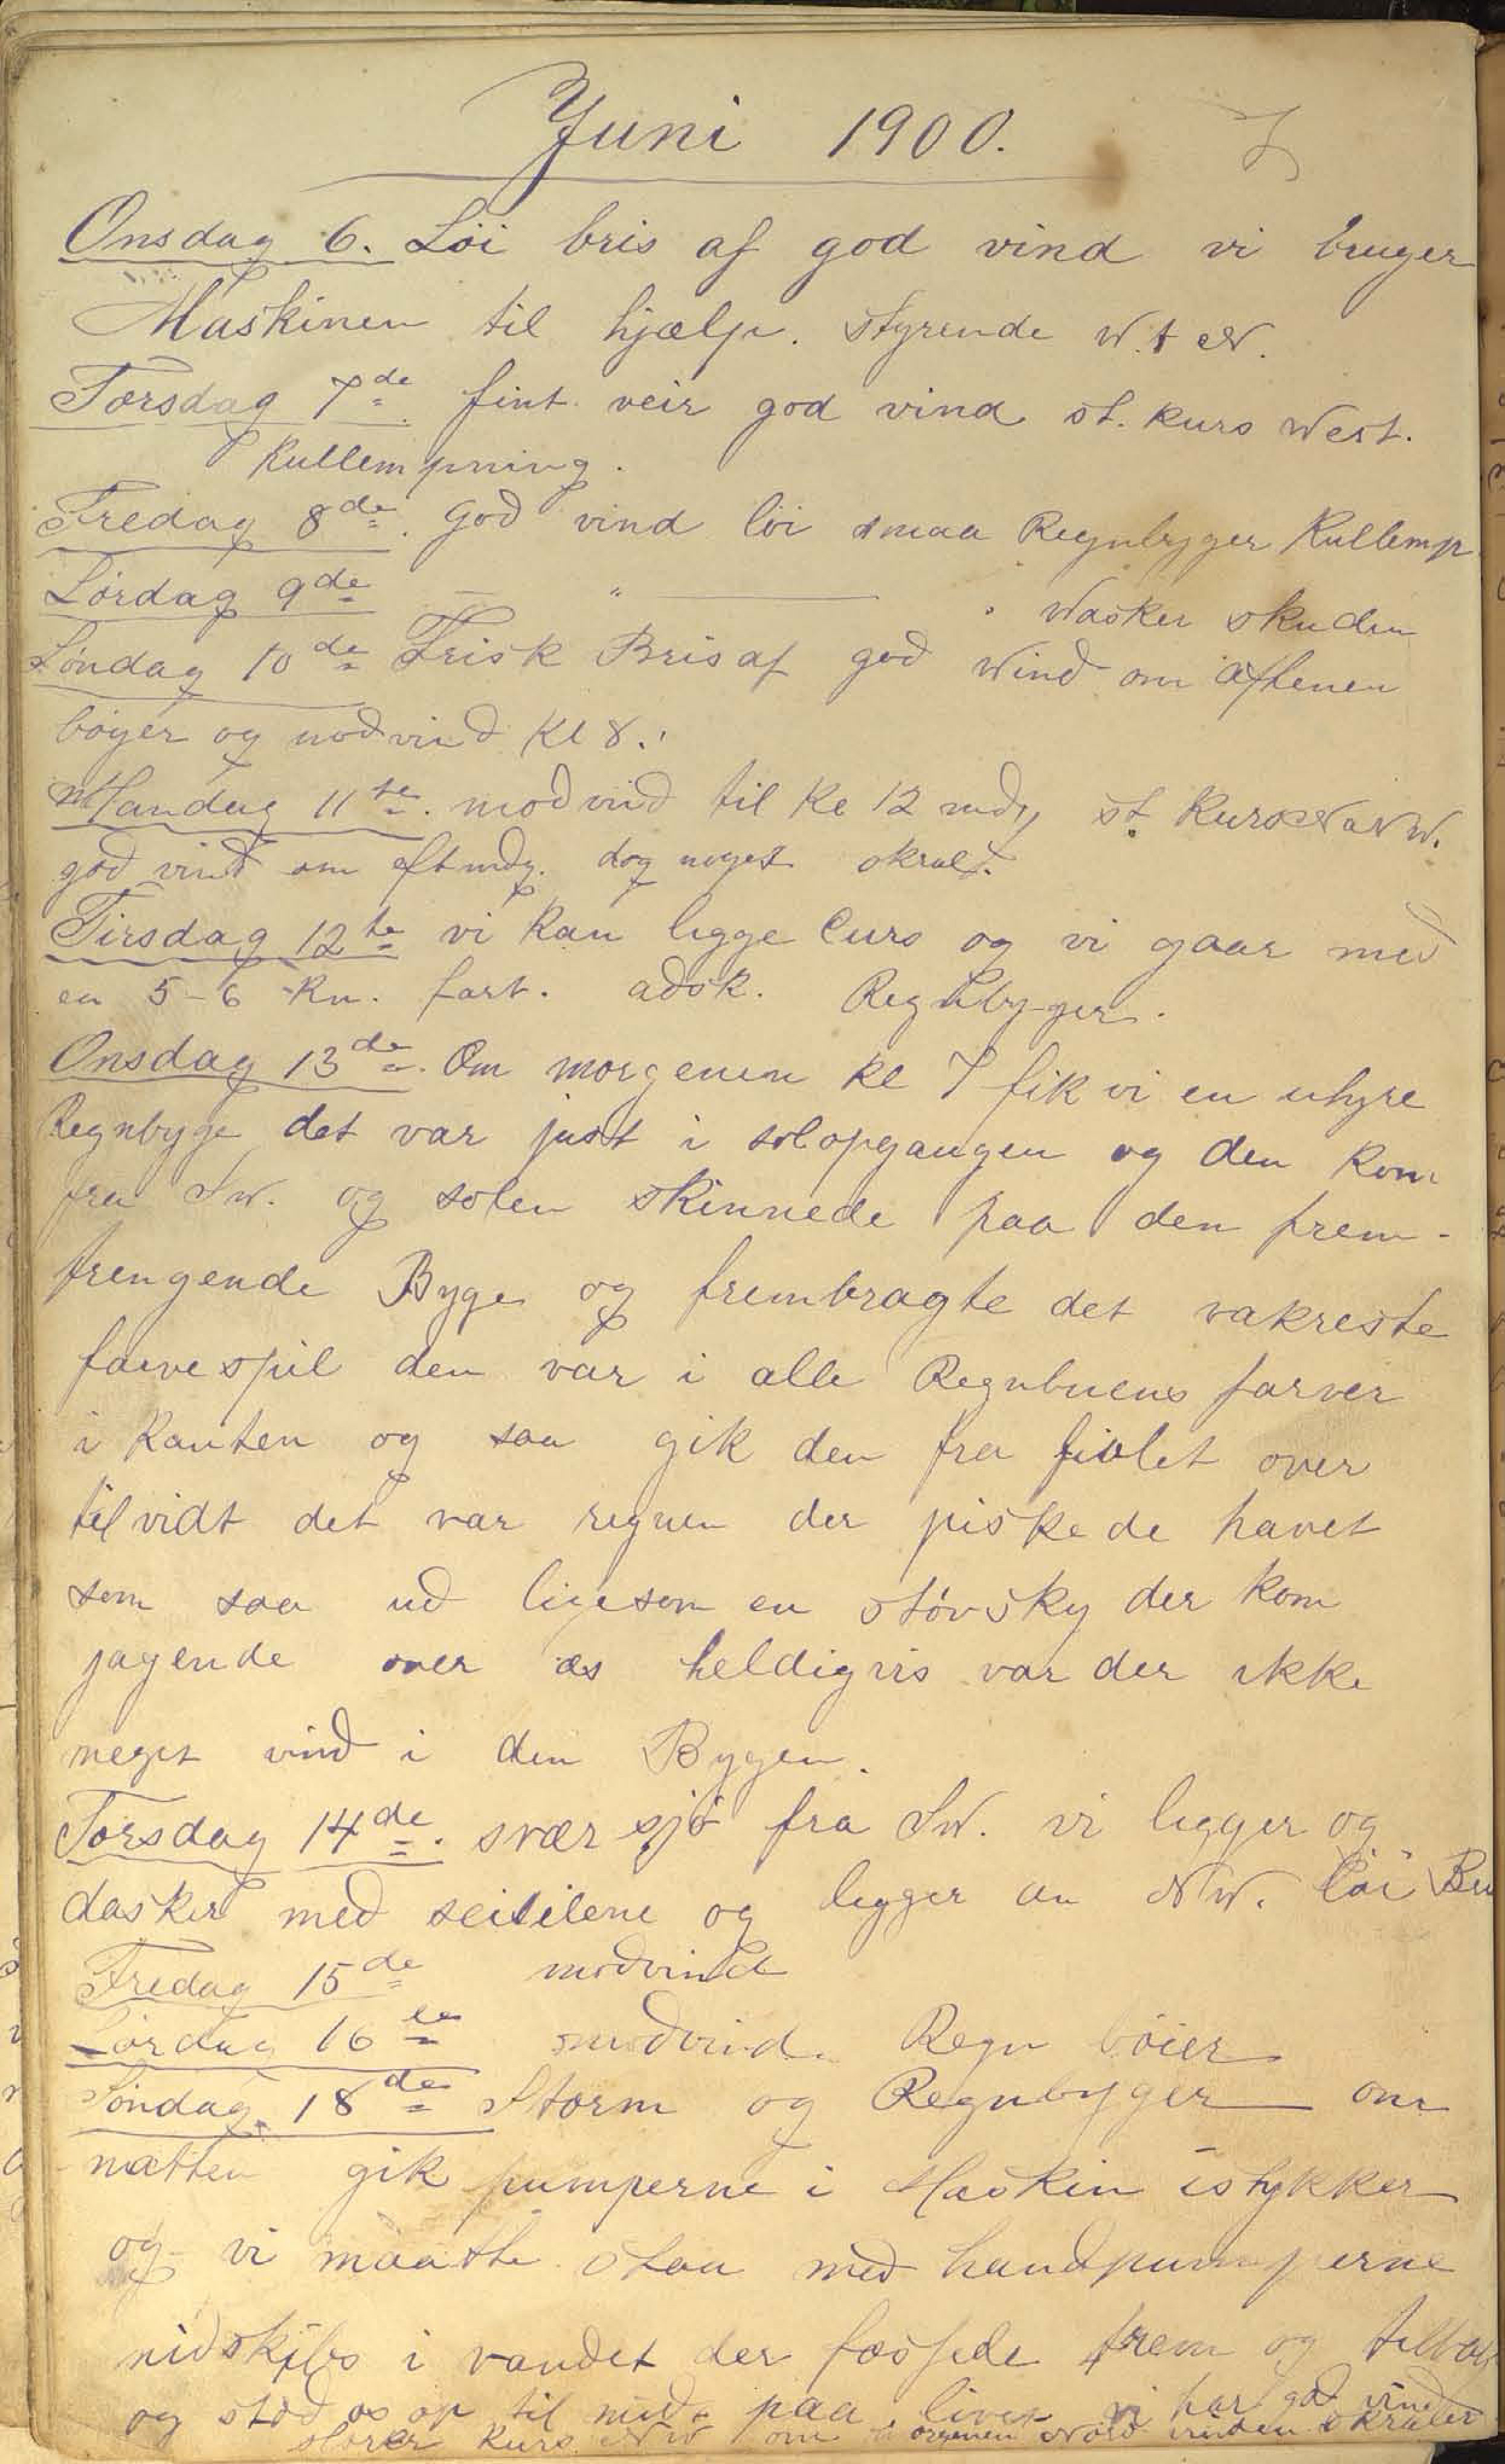 Juni 1900.
Onsdag 6. Löi bris af god vind vi bruger
Maskinen til hjælp. Styrende W.t.N.
Torsdag 7de fint veir god vind st. kurs West.
Kullempning.
Fredag 8de. God vind löi smaa Regnbyger Kullemp
Lördag 9de — " — . Wasker skuden
Söndag 10de Frisk Bris af god Wind om aftenen
böyer og modvind Kl 8.
Mandag 11te. modvind til Kl 12 mdg st. Kurs WNW.
god vind om eftmdg. dog noget skral.
Tirsdag 12te vi kan ligge Curs og vi gaar med
en 5-6 Kn. fart. adsk. Regnbyger.
Onsdag 13de. Om morgenen kl 7 fik vi en uhyre
Regnbyge det var just i solopgangen og den kom
fra SW. og solen skinnede paa den frem-
trengende Byge og frembragte det vakreste
farvespil den var i alle Regnbuens farver
i Kanten og saa gik den fra fiolet over
til vidt det var regnen der piskede havet
som saa ud ligesom en stövsky der kom
jagende over os heldigvis var der ikke
meget vind i den Bygen.
Torsdag 14de. svær sjö fra SW. vi ligger og
dasker med seilene og ligger an NW. löi
Fredag 15de modvind
Lördag 16de modvind. Regn böier
Söndag 18de Storm og Regnbyger om
natten gik pumperne i Maskin istykker
og vi maatte staa med handpumperne
midskibs i vandet der fossede frem og tilbage
og stod os op til midt paa livet vi har god vind
storer kurs NW om morgenen Nord vinden skraler